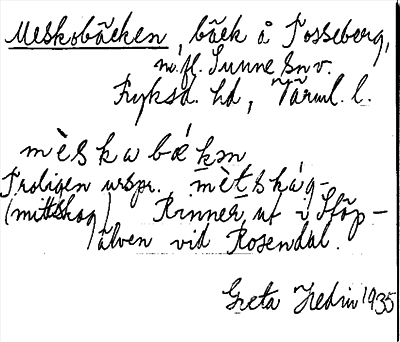 Meskobäcken, bäck å Tosseberg,
m. fl. Sunne sn v.
Fryksd. hd, Värml. l.
mèskabǽkən
Troligen urspr. mètskág-
(mittskog) Rinner ut i Stöp-
älven vid Rosendal.
Greta Hedin 1935